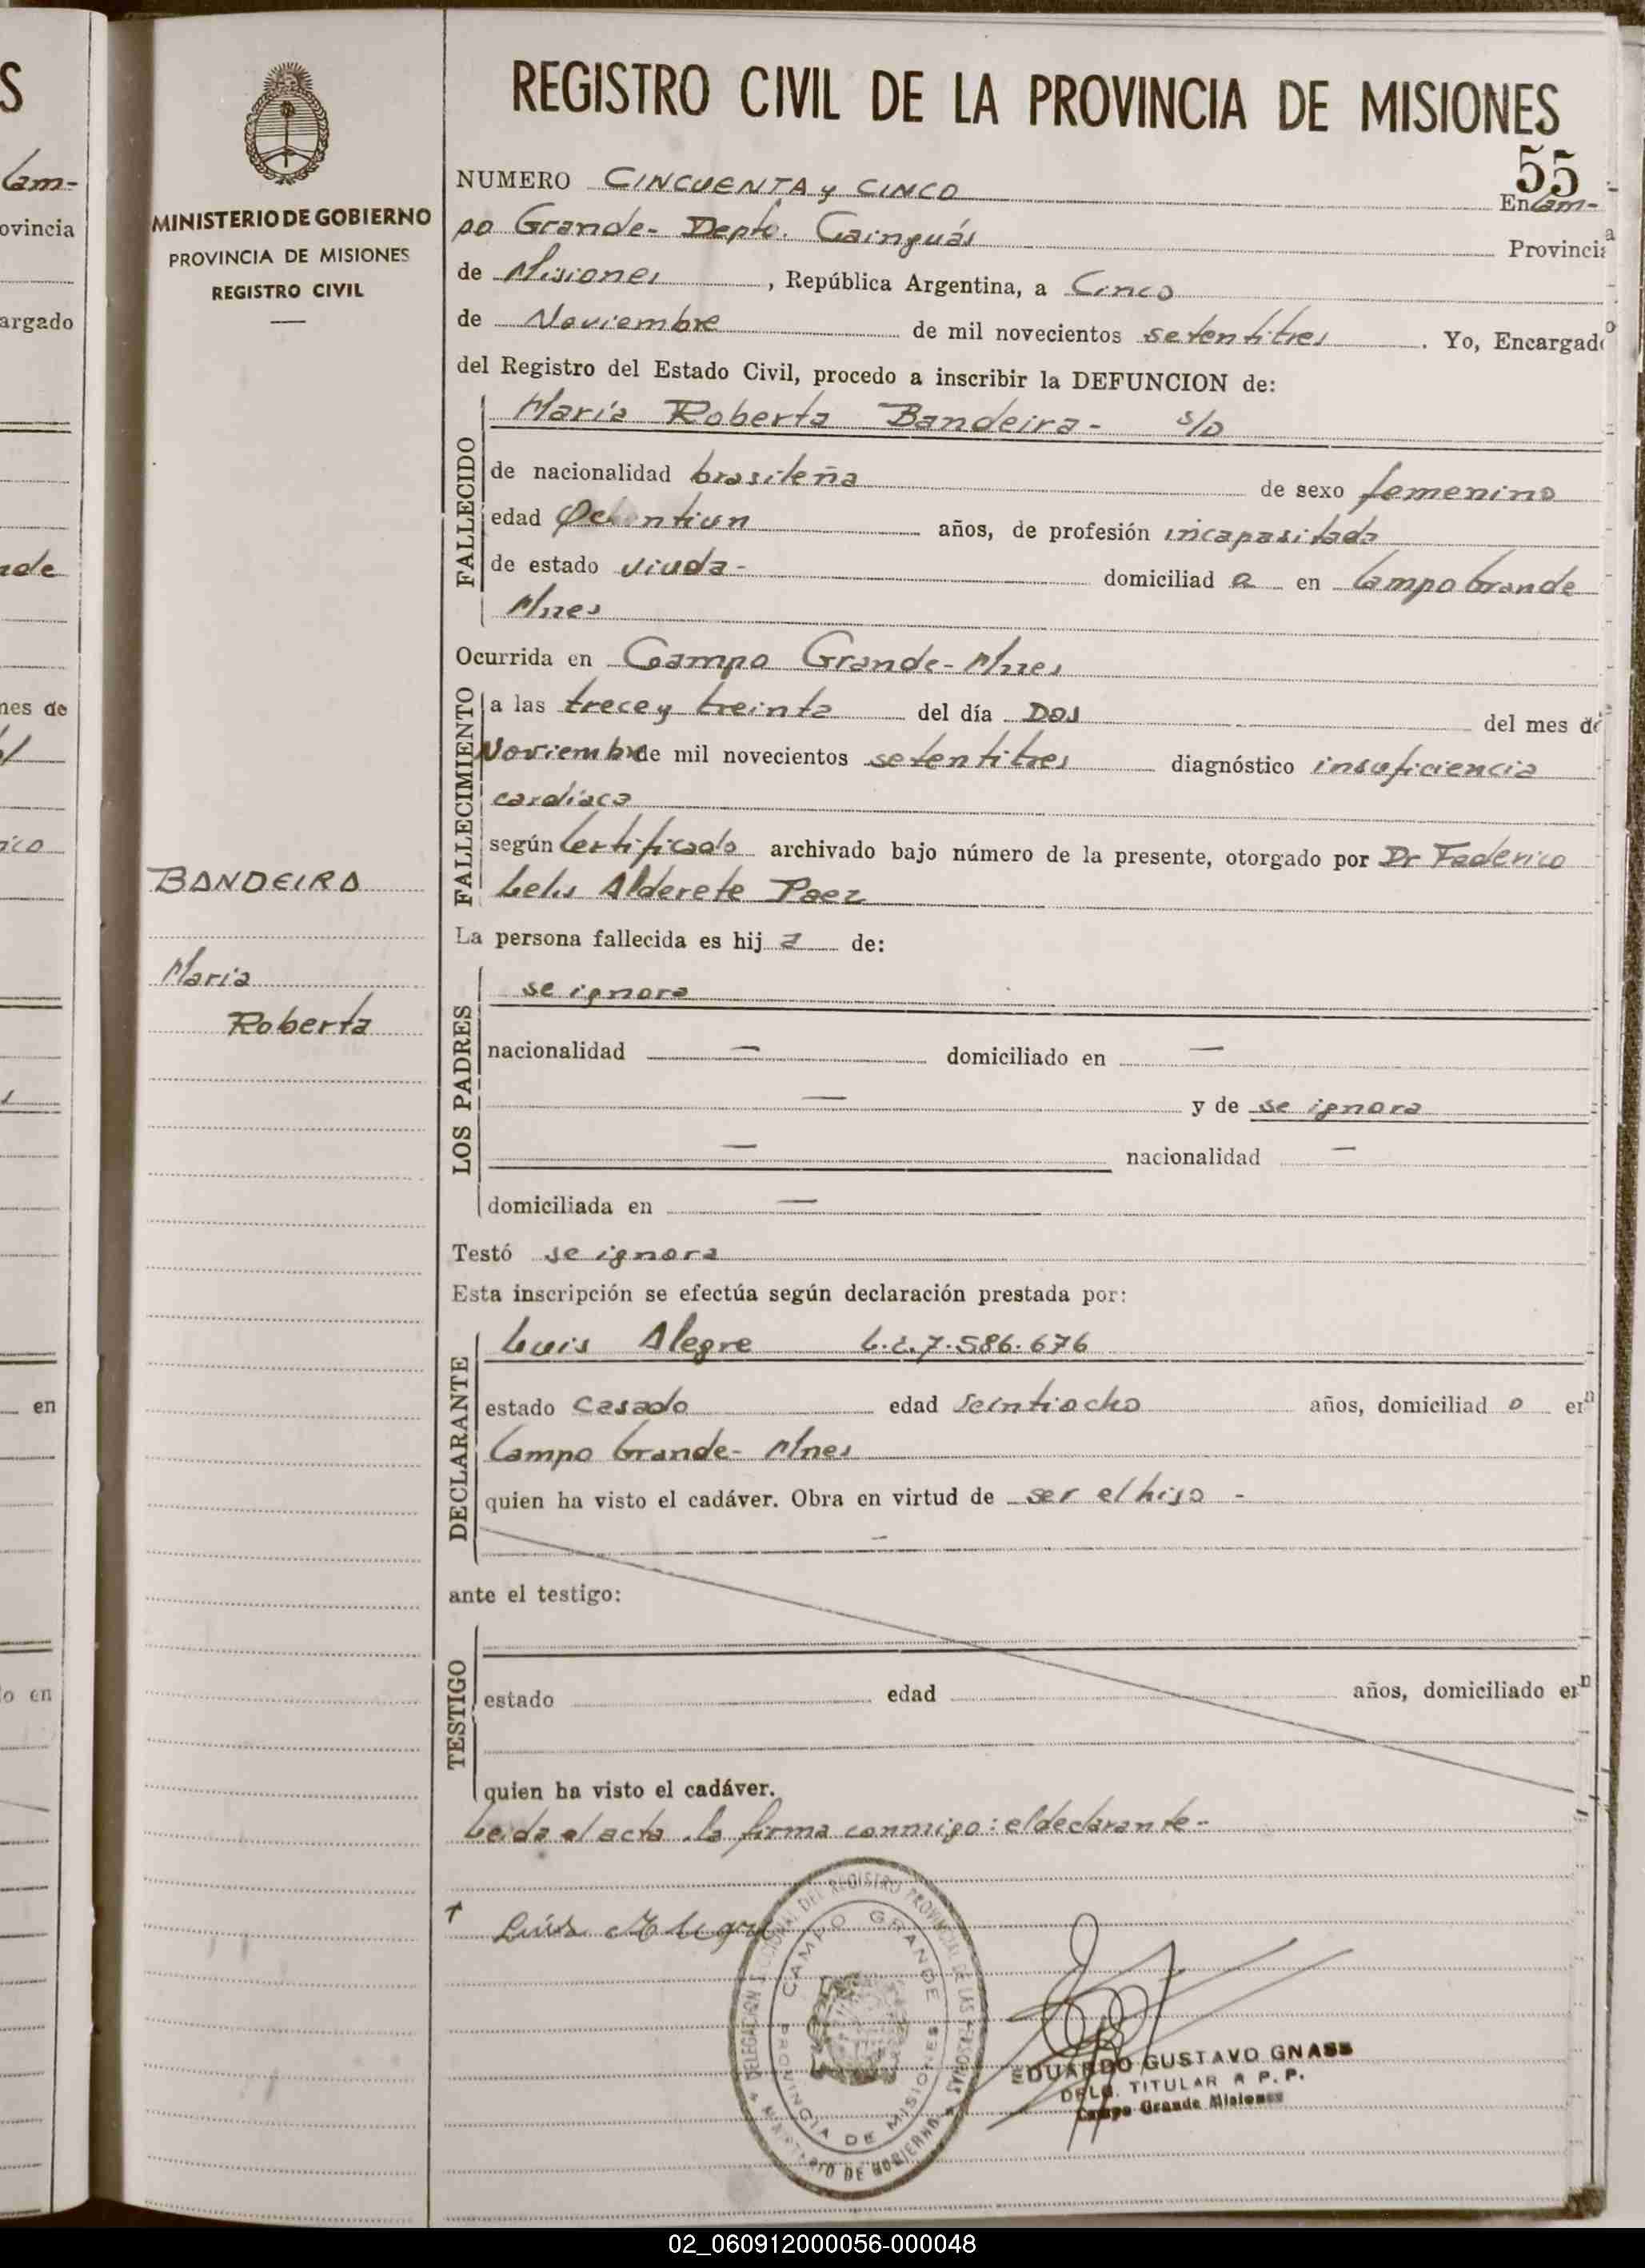 S
Cam-
ovincia
argado
ade
nes de
ico
en
o en
MINISTERIO DE GOBIERNO
PROVINCIA DE MISIONES
REGISTRO CIVIL
BANDEIRA
Maria
Roberta
REGISTRO CIVIL DE LA PROVINCIA DE MISIONES
55
NUMERO CINCUENTA y CINCO En Cam-
po Grande- Depto. Cainguás Provincia
de Misiones, República Argentina, a Cinco
de Noviembre de mil novecientos setentitres. Yo, Encargado
del Registro del Estado Civil, procedo a inscribir la DEFUNCION de:
FALLECIDO
María Roberta Bandeira- s/D
de nacionalidad brasileña de sexo femenino
edad Ochentiun años, de profesión incapasitada
de estado viuda- domiciliad a en Campo Grande
Mnes
Ocurrida en Campo Grande- Mnes
FALLECIMIENTO
a las trece y treinta del día Dos del mes de
Noviembre de mil novecientos setentitres diagnóstico insuficiencia
cardíaca
según Certificado archivado bajo número de la presente, otorgado por Dr Federico
Lelis Alderete Paez
La persona fallecida es hij a de:
LOS PADRES
se ignora
nacionalidad — domiciliado en —
— y de se ignora
— nacionalidad —
domiciliada en —
Testó se ignora
Esta inscripción se efectúa según declaración prestada por:
DECLARANTE
Luis Alegre L.E.7.586.676
estado Casado edad seintiocho años, domiciliad o en
Campo Grande- Mnes
quien ha visto el cadáver. Obra en virtud de ser el hijo -
ante el testigo:
TESTIGO
estado edad años, domiciliado en
quien ha visto el cadáver.
Leida el acta la firma conmigo: el declarante-
Luis Alegre
DELEGACION SECCIONAL DEL REGISTRO PROVINCIAL DE LAS PERSONAS
CAMPO GRANDE
PROVINCIA DE MISIONES
MINISTERIO DE GOBIERNO
EDUARDO GUSTAVO GNASS
DELG. TITULAR R P. P.
Campo Grande Misiones
02_060912000056-000048